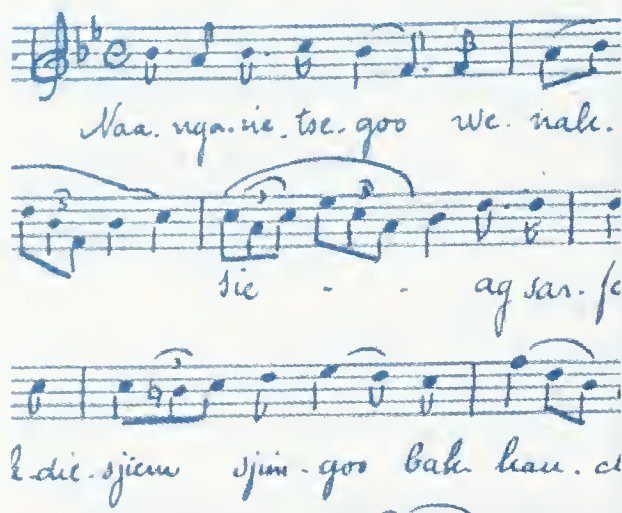 Naa. nga. sie. tse. goo we. nak.
sie - - ag sar. fe
k. die. sjiem sjim - goo bak kau. d